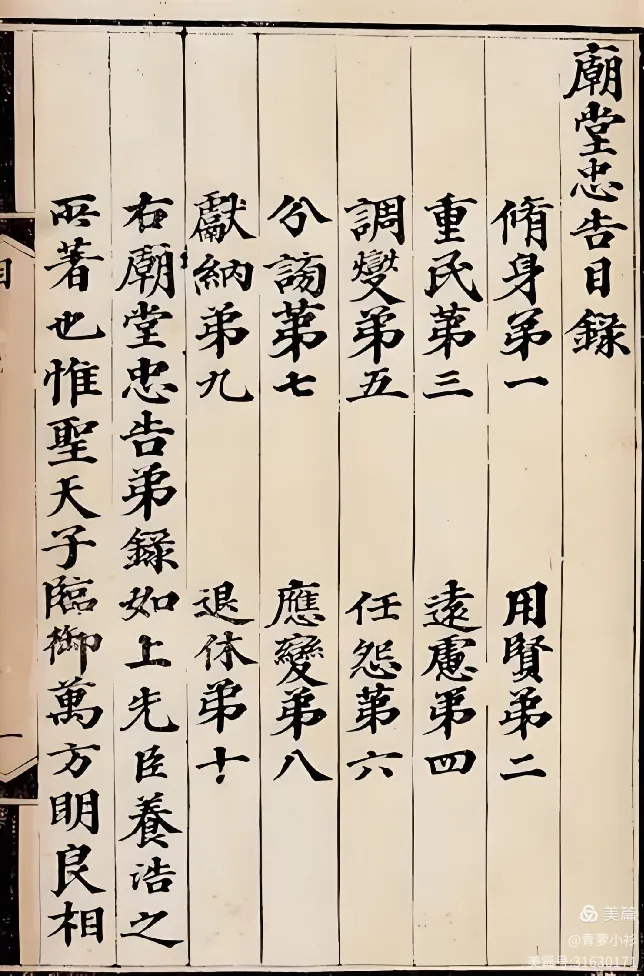 廟堂忠告目録
脩身弟一 用賢弟二
重民苐三 遠慮弟四
調燮弟五 任怨苐六
分謗苐七 應變弟八
獻納弟九 退休弟十
右廟堂忠告弟録如上先臣養浩之
所著也惟聖天子臨御萬方明良相
美篇
@青萝小衫
美篇号:31630171